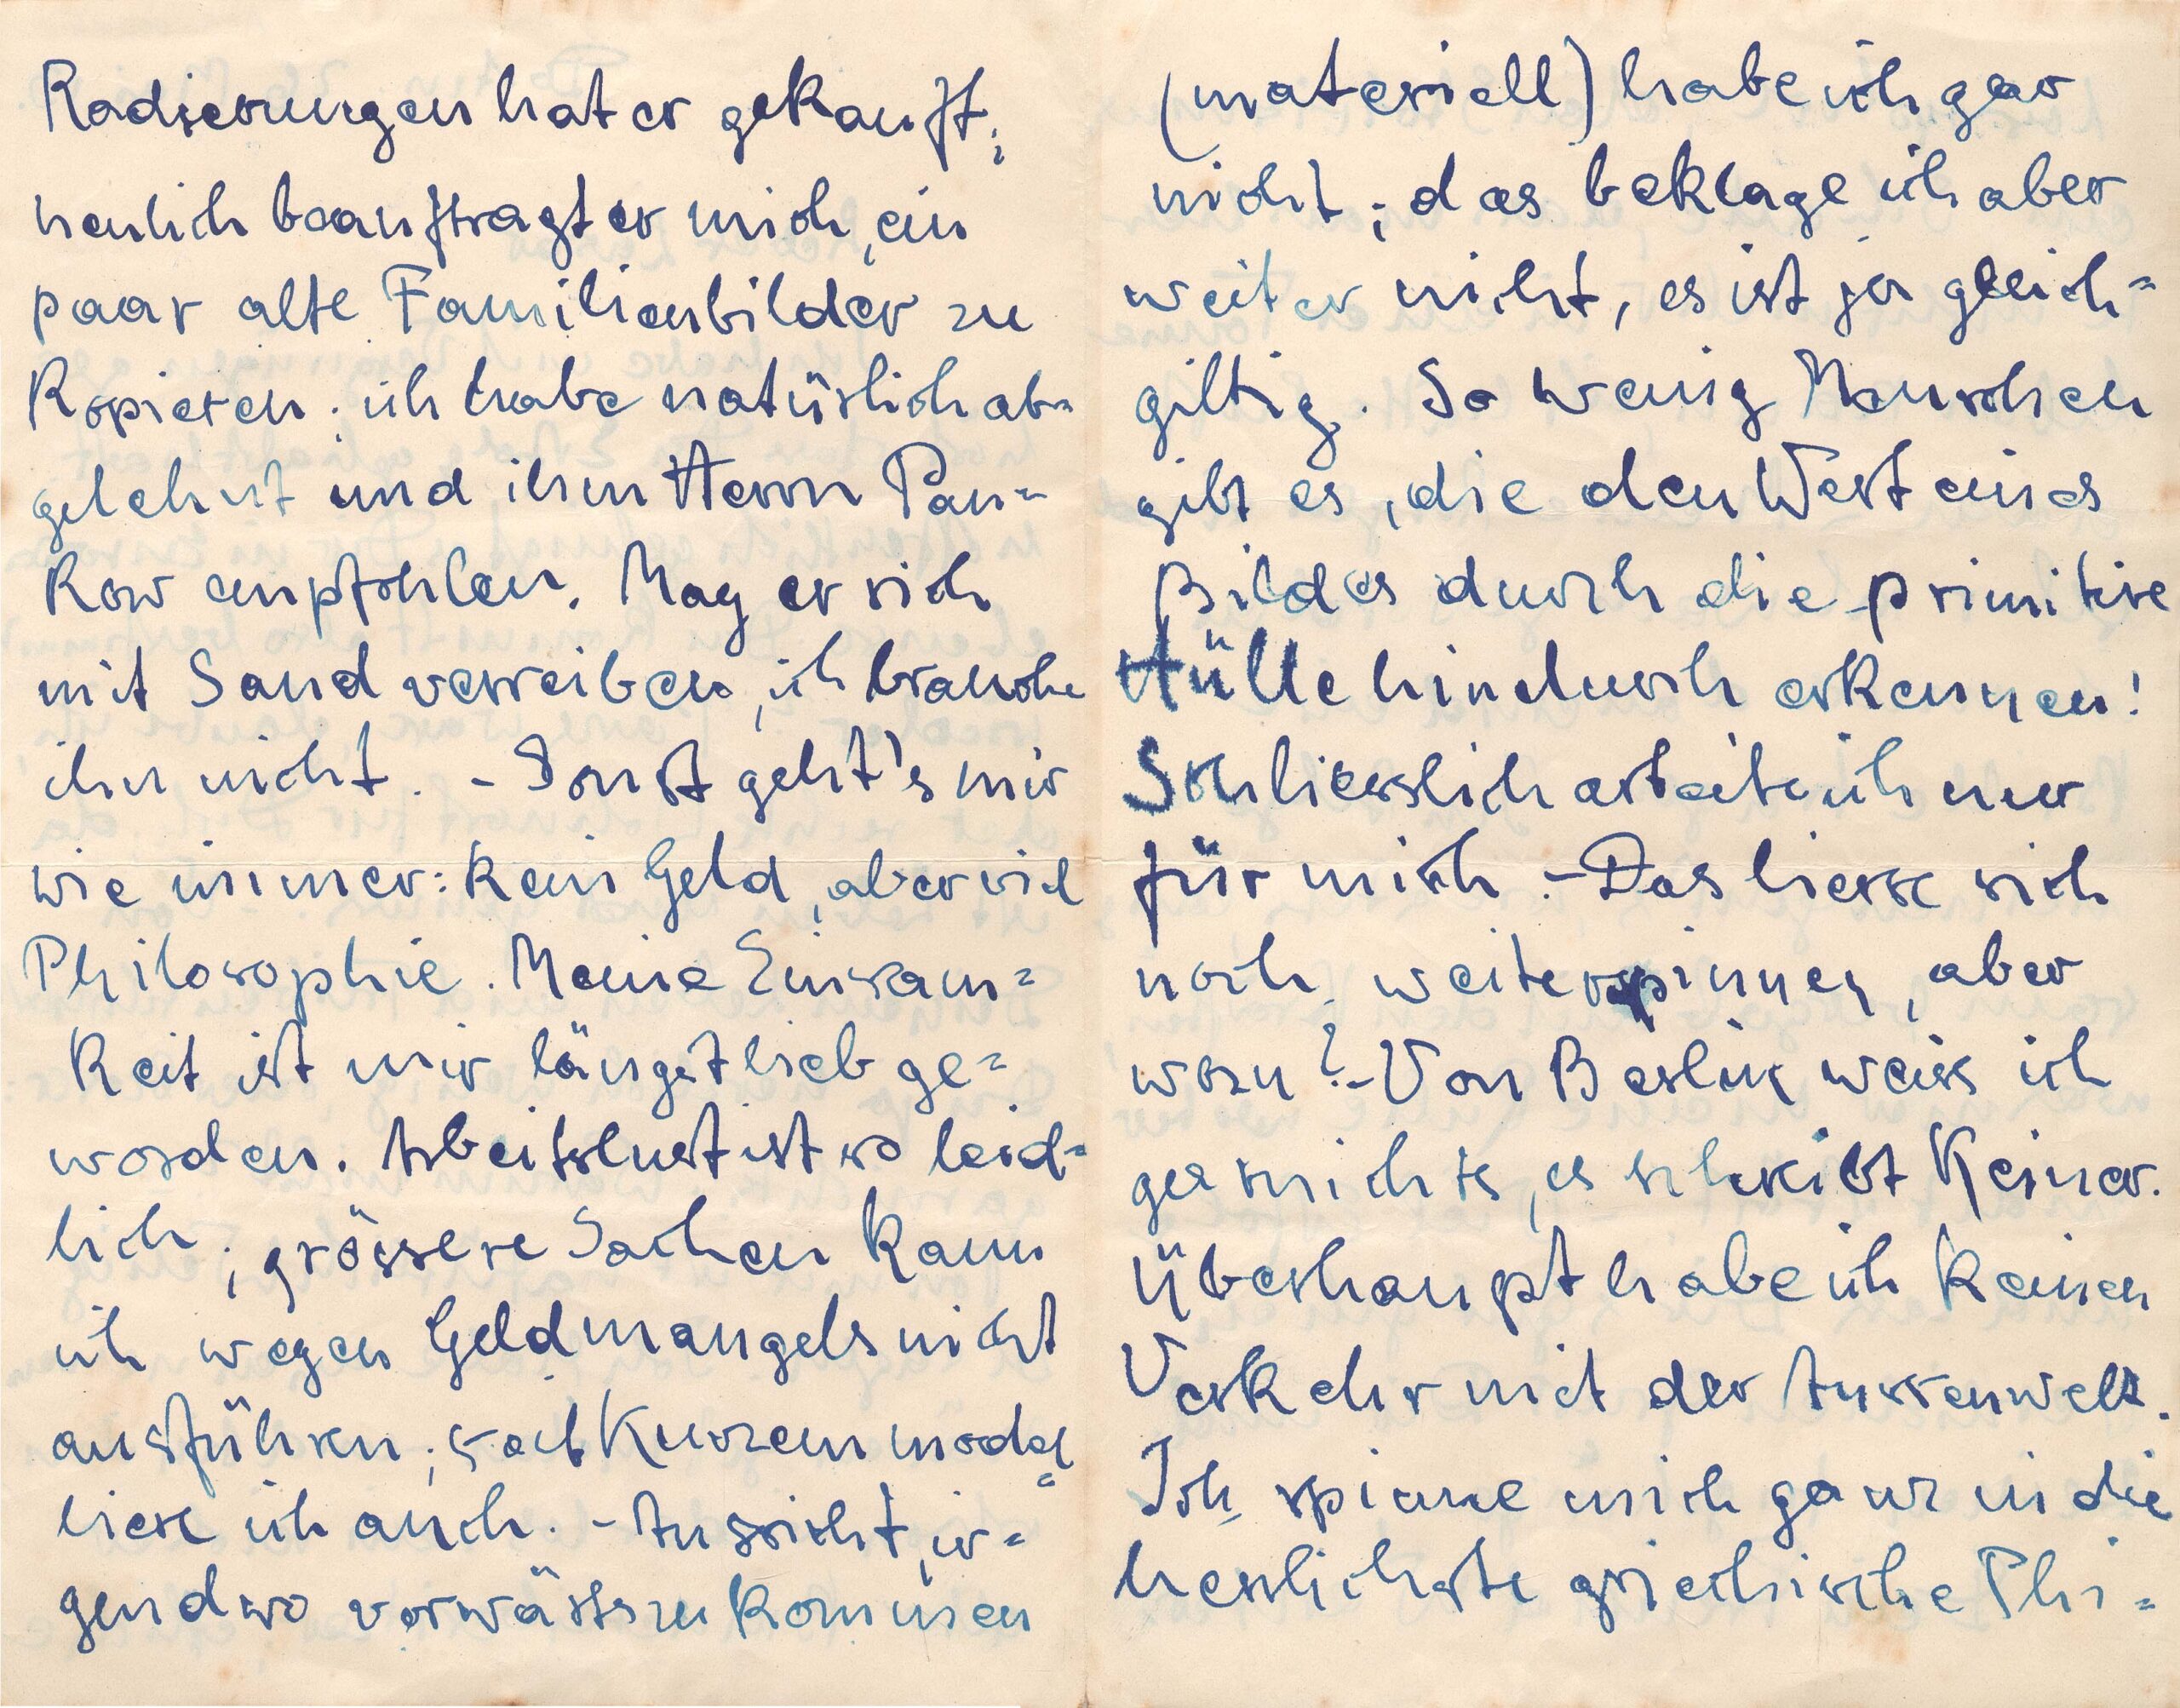 Radierungen hat er gekauft;
neulich beauftragt er mich, ein
paar alte Familienbilder zu
kopieren; ich habe natürlich ab=
gelehnt und ihm Herrn Pan=
kow empfohlen. Mag er sich
mit Sand verreiben, ich brauche
ihn nicht. - Sonst geht's mir
wie immer: kein Geld, aber viel
Philosophie. Meine Einsam=
keit ist mir längst lieb ge=
worden. Arbeitslust ist so leid=
lich; grössere Sachen kann
ich wegen Geldmangels nicht
ausführen; seit Kurzem model=
liere ich auch. - Aussicht, ir=
gendwo vorwärts zu kommen
(materiell) habe ich gar
nicht; das beklage ich aber
weiter nicht, es ist ja gleich=
giltig. So wenig Menschen
gibt es, die den Wert eines
Bildes durch die primitive
Hülle hindurch erkennen!
Schliesslich arbeite ich nur
für mich. - Das liesse sich
noch weiterspinnen, aber
wozu? - Von Berlin weiss ich
gar nichts, es schreibt Keiner.
Überhaupt habe ich keinen
Verkehr mit der Aussenwelt.
Ich spinne mich ganz in die
herrlichste griechische Phi=